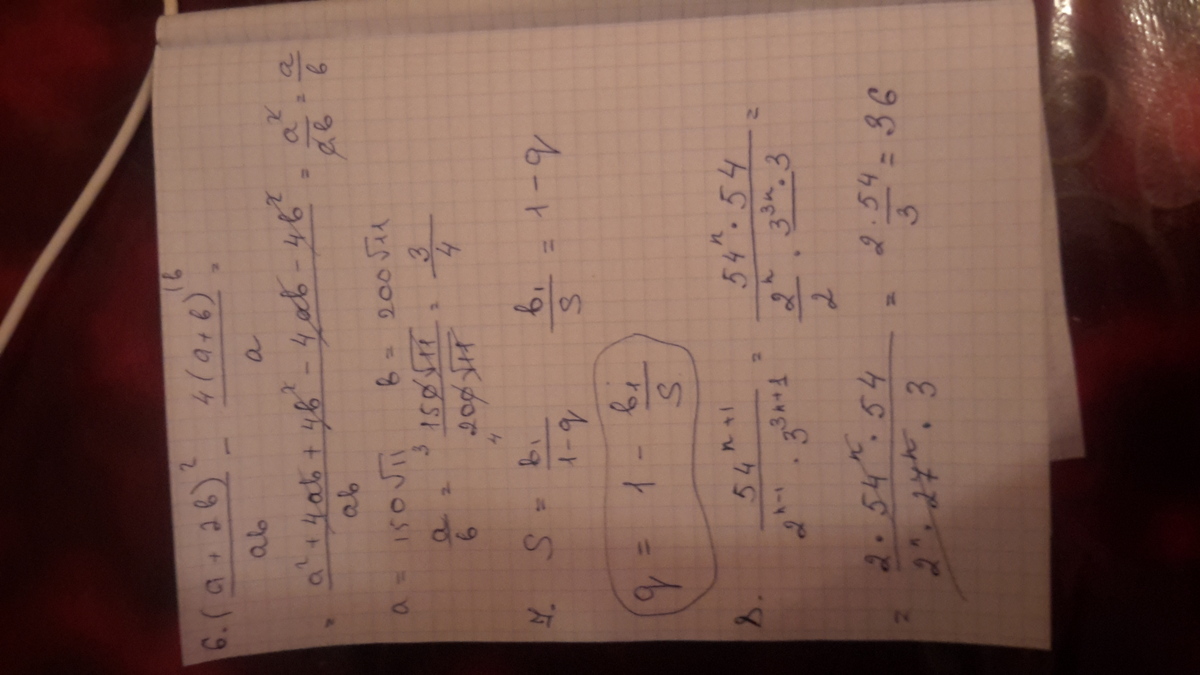 6. (a + 2b)² / ab − 4(a+b)^(b / a =
= (a² + 4ab + 4b² − 4ab − 4b²) / ab = a² / ab = a / b
a = 150√11 b = 200√11
a / b = 150√11 / 200√11 = 3 / 4
3 4
7. S = b₁ / (1−q) b₁ / S = 1 − q
q = 1 − b₁ / S
8. 54ⁿ⁺¹ / (2ⁿ⁻¹ · 3³ⁿ⁺¹) = 54ⁿ · 54 / ((2ⁿ / 2) · 3³ⁿ · 3) =
= 2 · 54ⁿ · 54 / (2ⁿ · 27ⁿ · 3) = 2 · 54 / 3 = 36